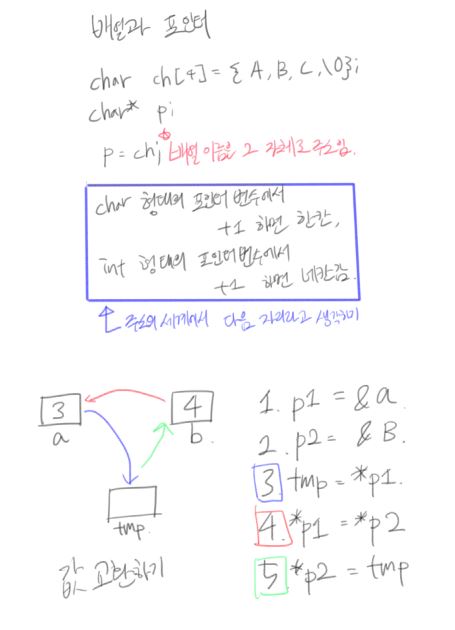 배열과 포인터
char ch[4] = { A, B, C, \0};
char* p;
p = ch; 배열 이름은 그 자체로 주소임.
char 형태의 포인터 변수에서
+1 하면 한칸,
int 형태의 포인터변수에서
+1 하면 네칸감.
주소의 세계에서 다음 자리라고 생각하기
3
4
a
b.
tmp.
값 교환하기
1. p1 = &a.
2. p2 = &B.
3. tmp = *p1.
4. *p1 = *p2
5. *p2 = tmp